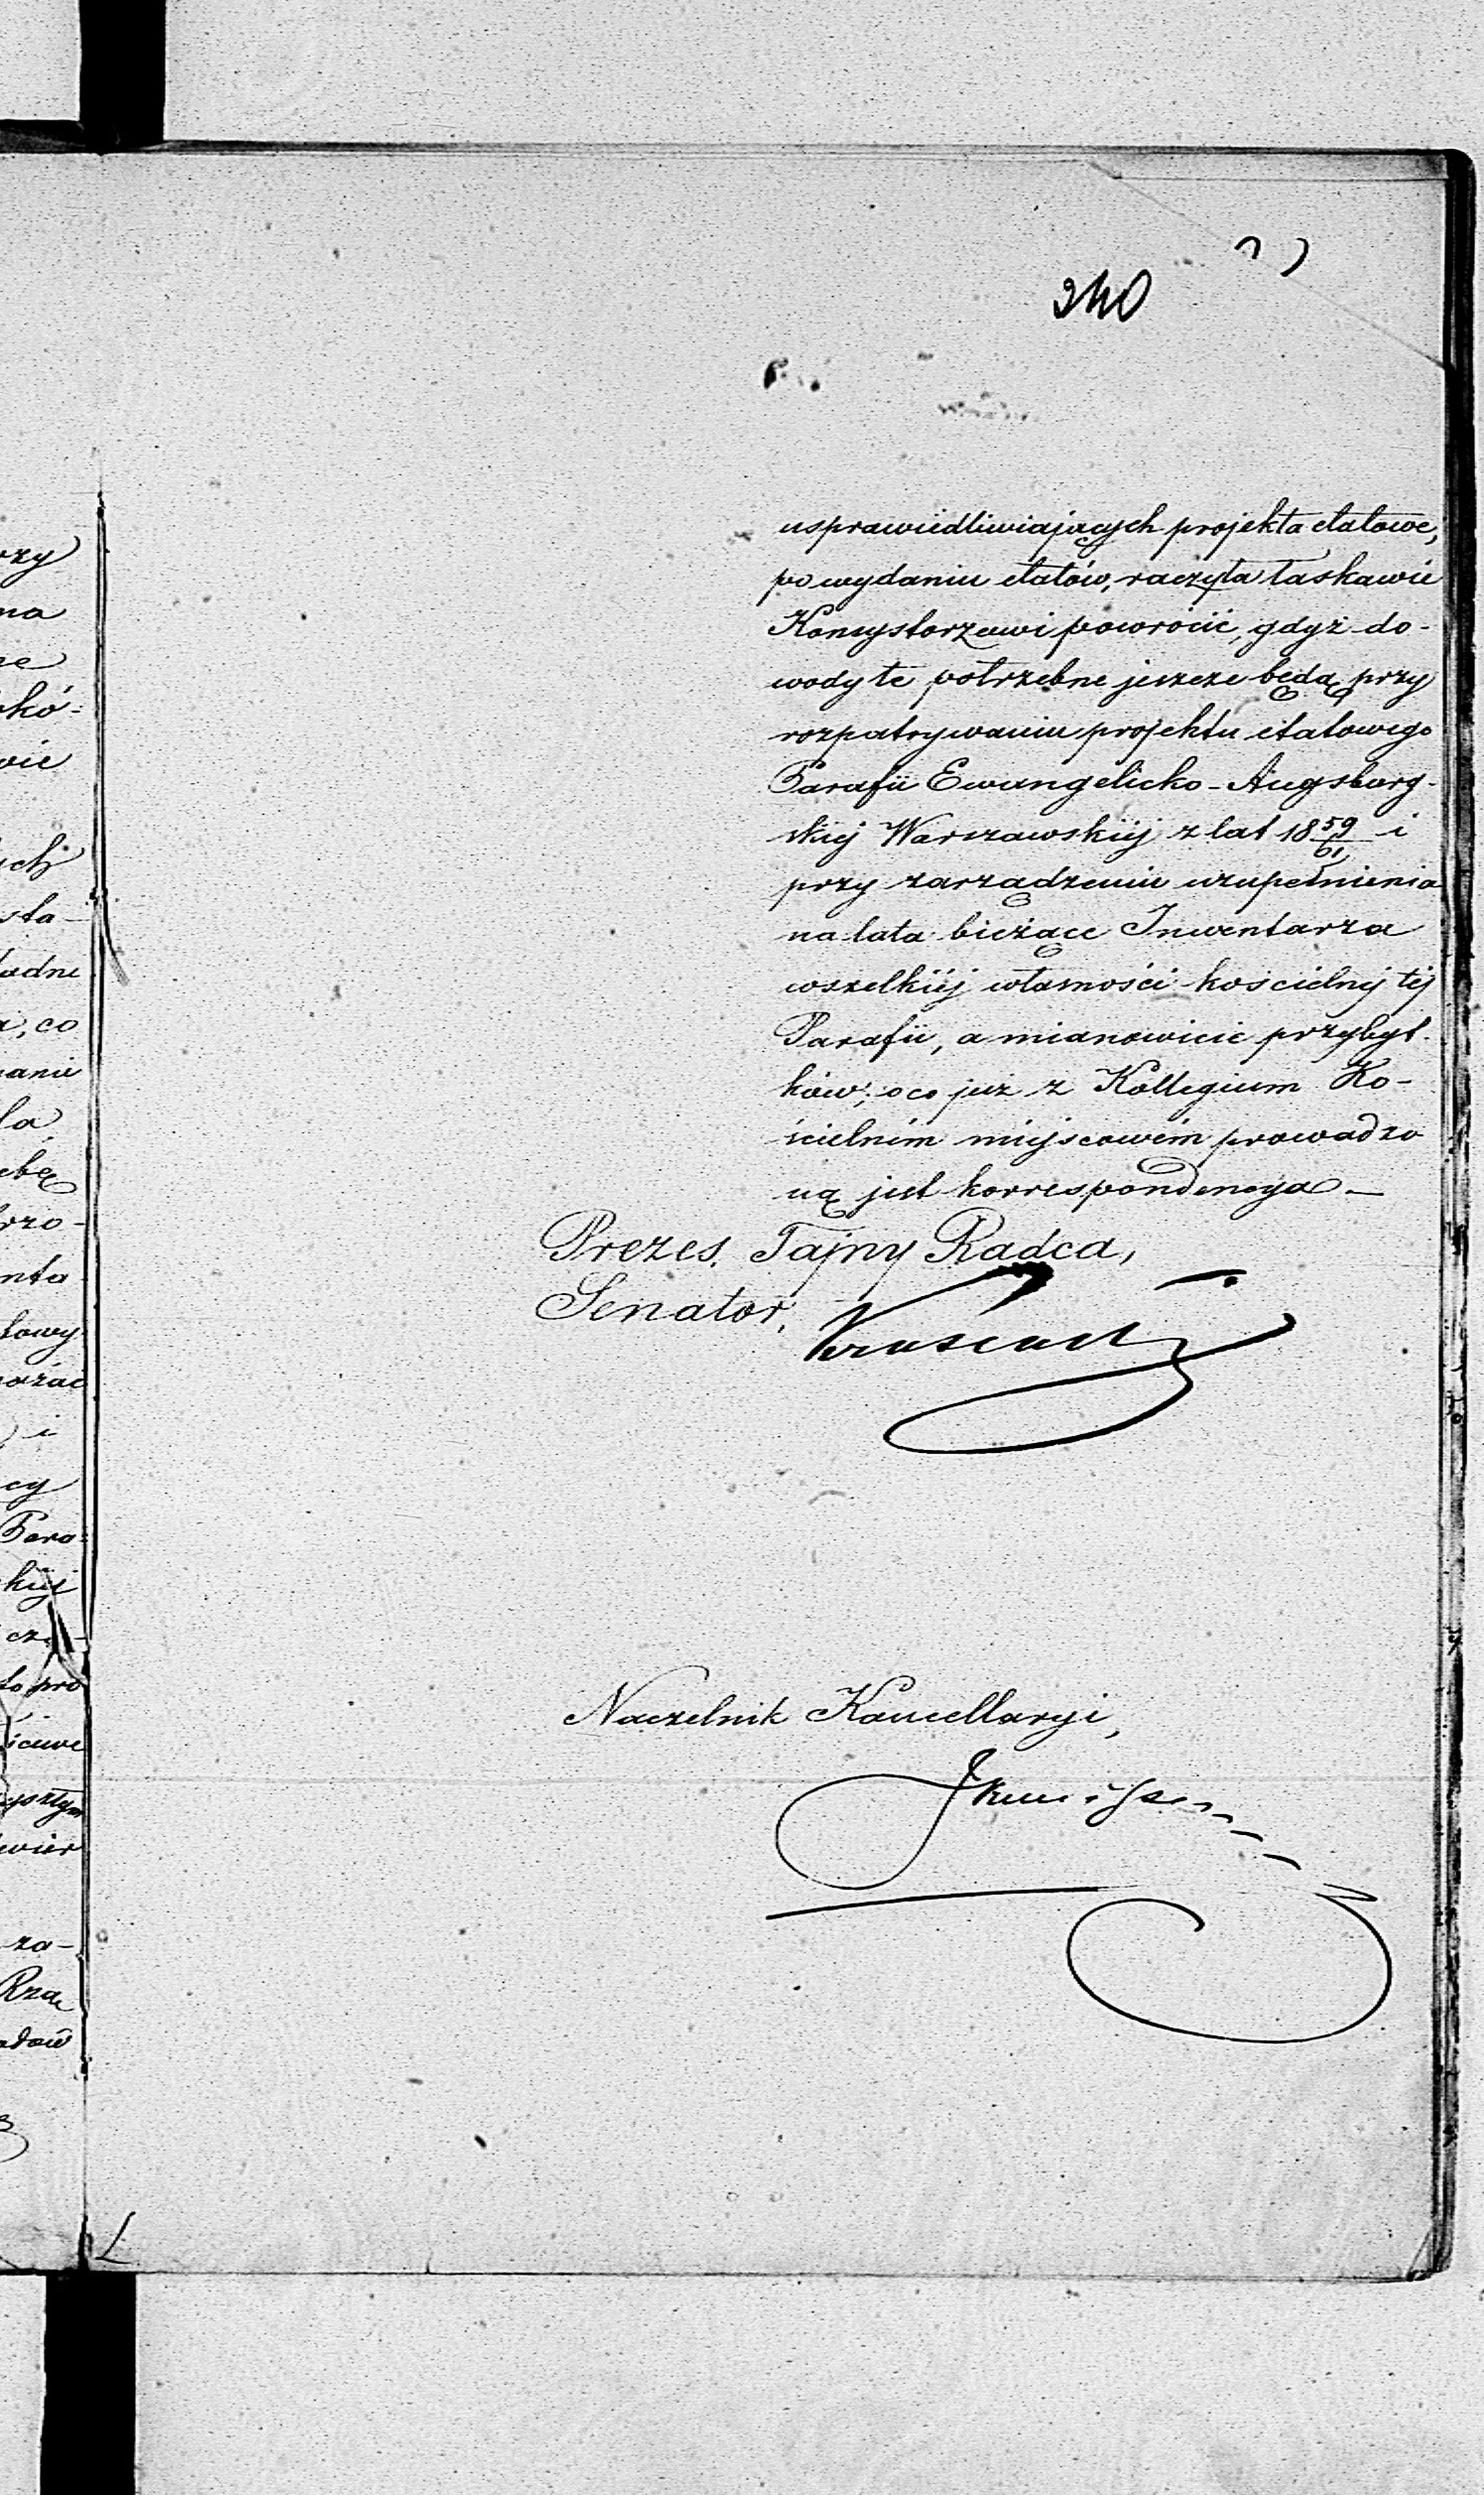 240
usprawiedliwiających projekta etatowe,
po wydaniu etatów, raczyła łaskawie
Konsystorzowi powrócić, gdyż do-
wody te potrzebne jeszcze będą przy
rozpatrywaniu projektu etatowego
Parafii Ewangelicko-Augsburg-
skiéj Warszawskiéj z lat 18 59/61 i
przy zarządzeniu uzupełnienia
na lata bieżące Inwentarza
wszelkiéj własności kościelnéj téj
Parafii, a mianowicie przybyt-
ków; o co już z Kollegium Ko-
ścielném miejscowém prowadzo
ną jest korrespondencya —
Prezes, Tajny Radca,
Senator,
Naczelnik Kancellaryi,
rzy
na
ze
kó-
wie
ych
sta-
adne
a, co
anie
la
ebę
rzo-
nta
towy
ażać
i
cy
Para-
kiéj
cz
to pro
za-
Rzą
odów